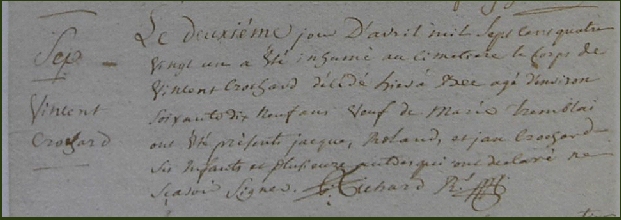 Le deuxiéme jour D'avril mil Sept cens quatre
Sep.
vingt un a été inhumé au cimetiere le corps de
Vincent Crochard décédé hier à agé d'environ
Vincent
Soixante dix neuf ans veuf de Marie tremblai
Crochard
ont été présents jacque, Roland, et jean Crochard
Ses Enfants et plusieurs autres qui ont declaré ne
Scavoir Signer. Richard